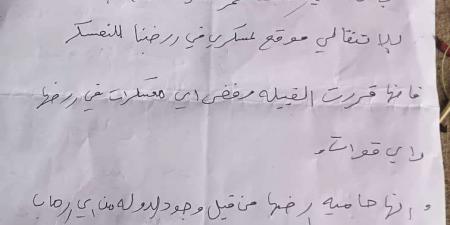 للإنتقالي موقع عسكري في ررضنا للتعسكر
فانها قررت القبيله رفض اي معسكرات في ررضها
لاي قوات
و إنها حاميه ررضها من قبل وجود الدوله من اي إرهاب